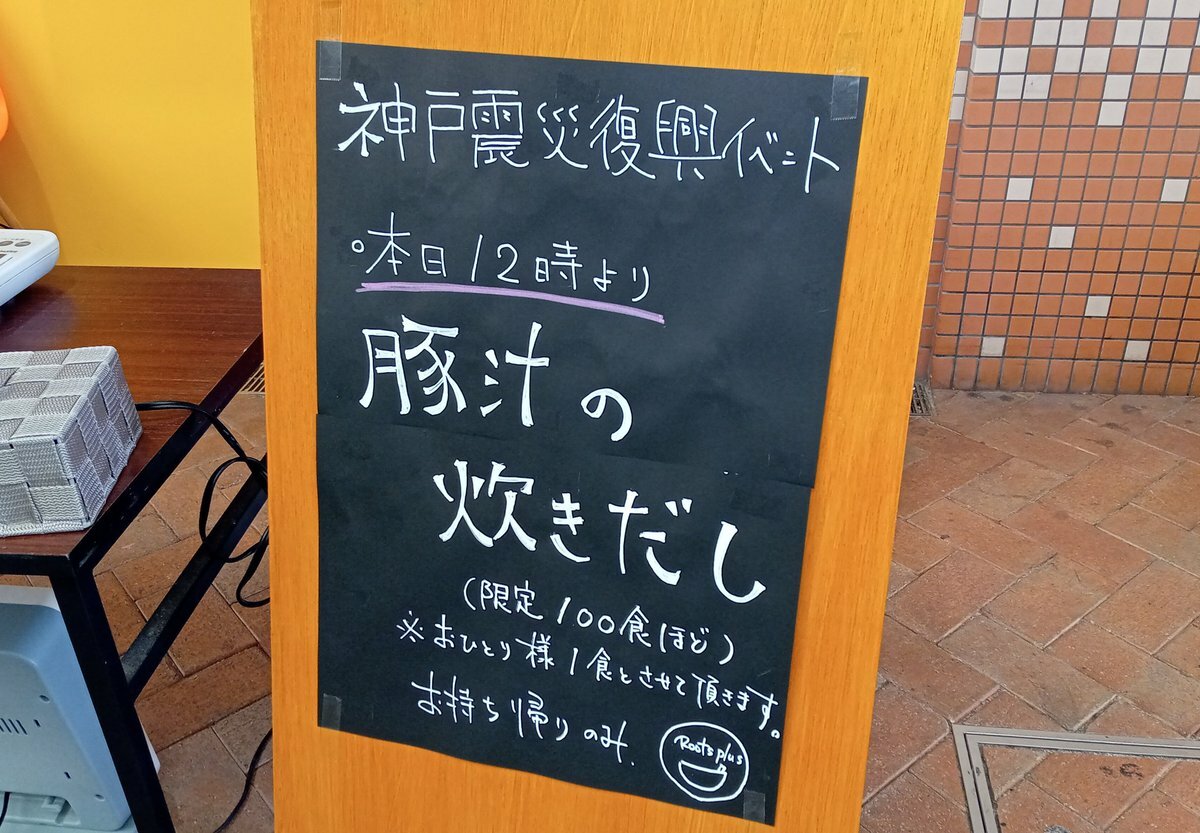 神戸震災復興イベント
○本日12時より
豚汁の
炊きだし
(限定100食ほど)
※おひとり様1食とさせて頂きます。
お持ち帰りのみ.
Roots plus